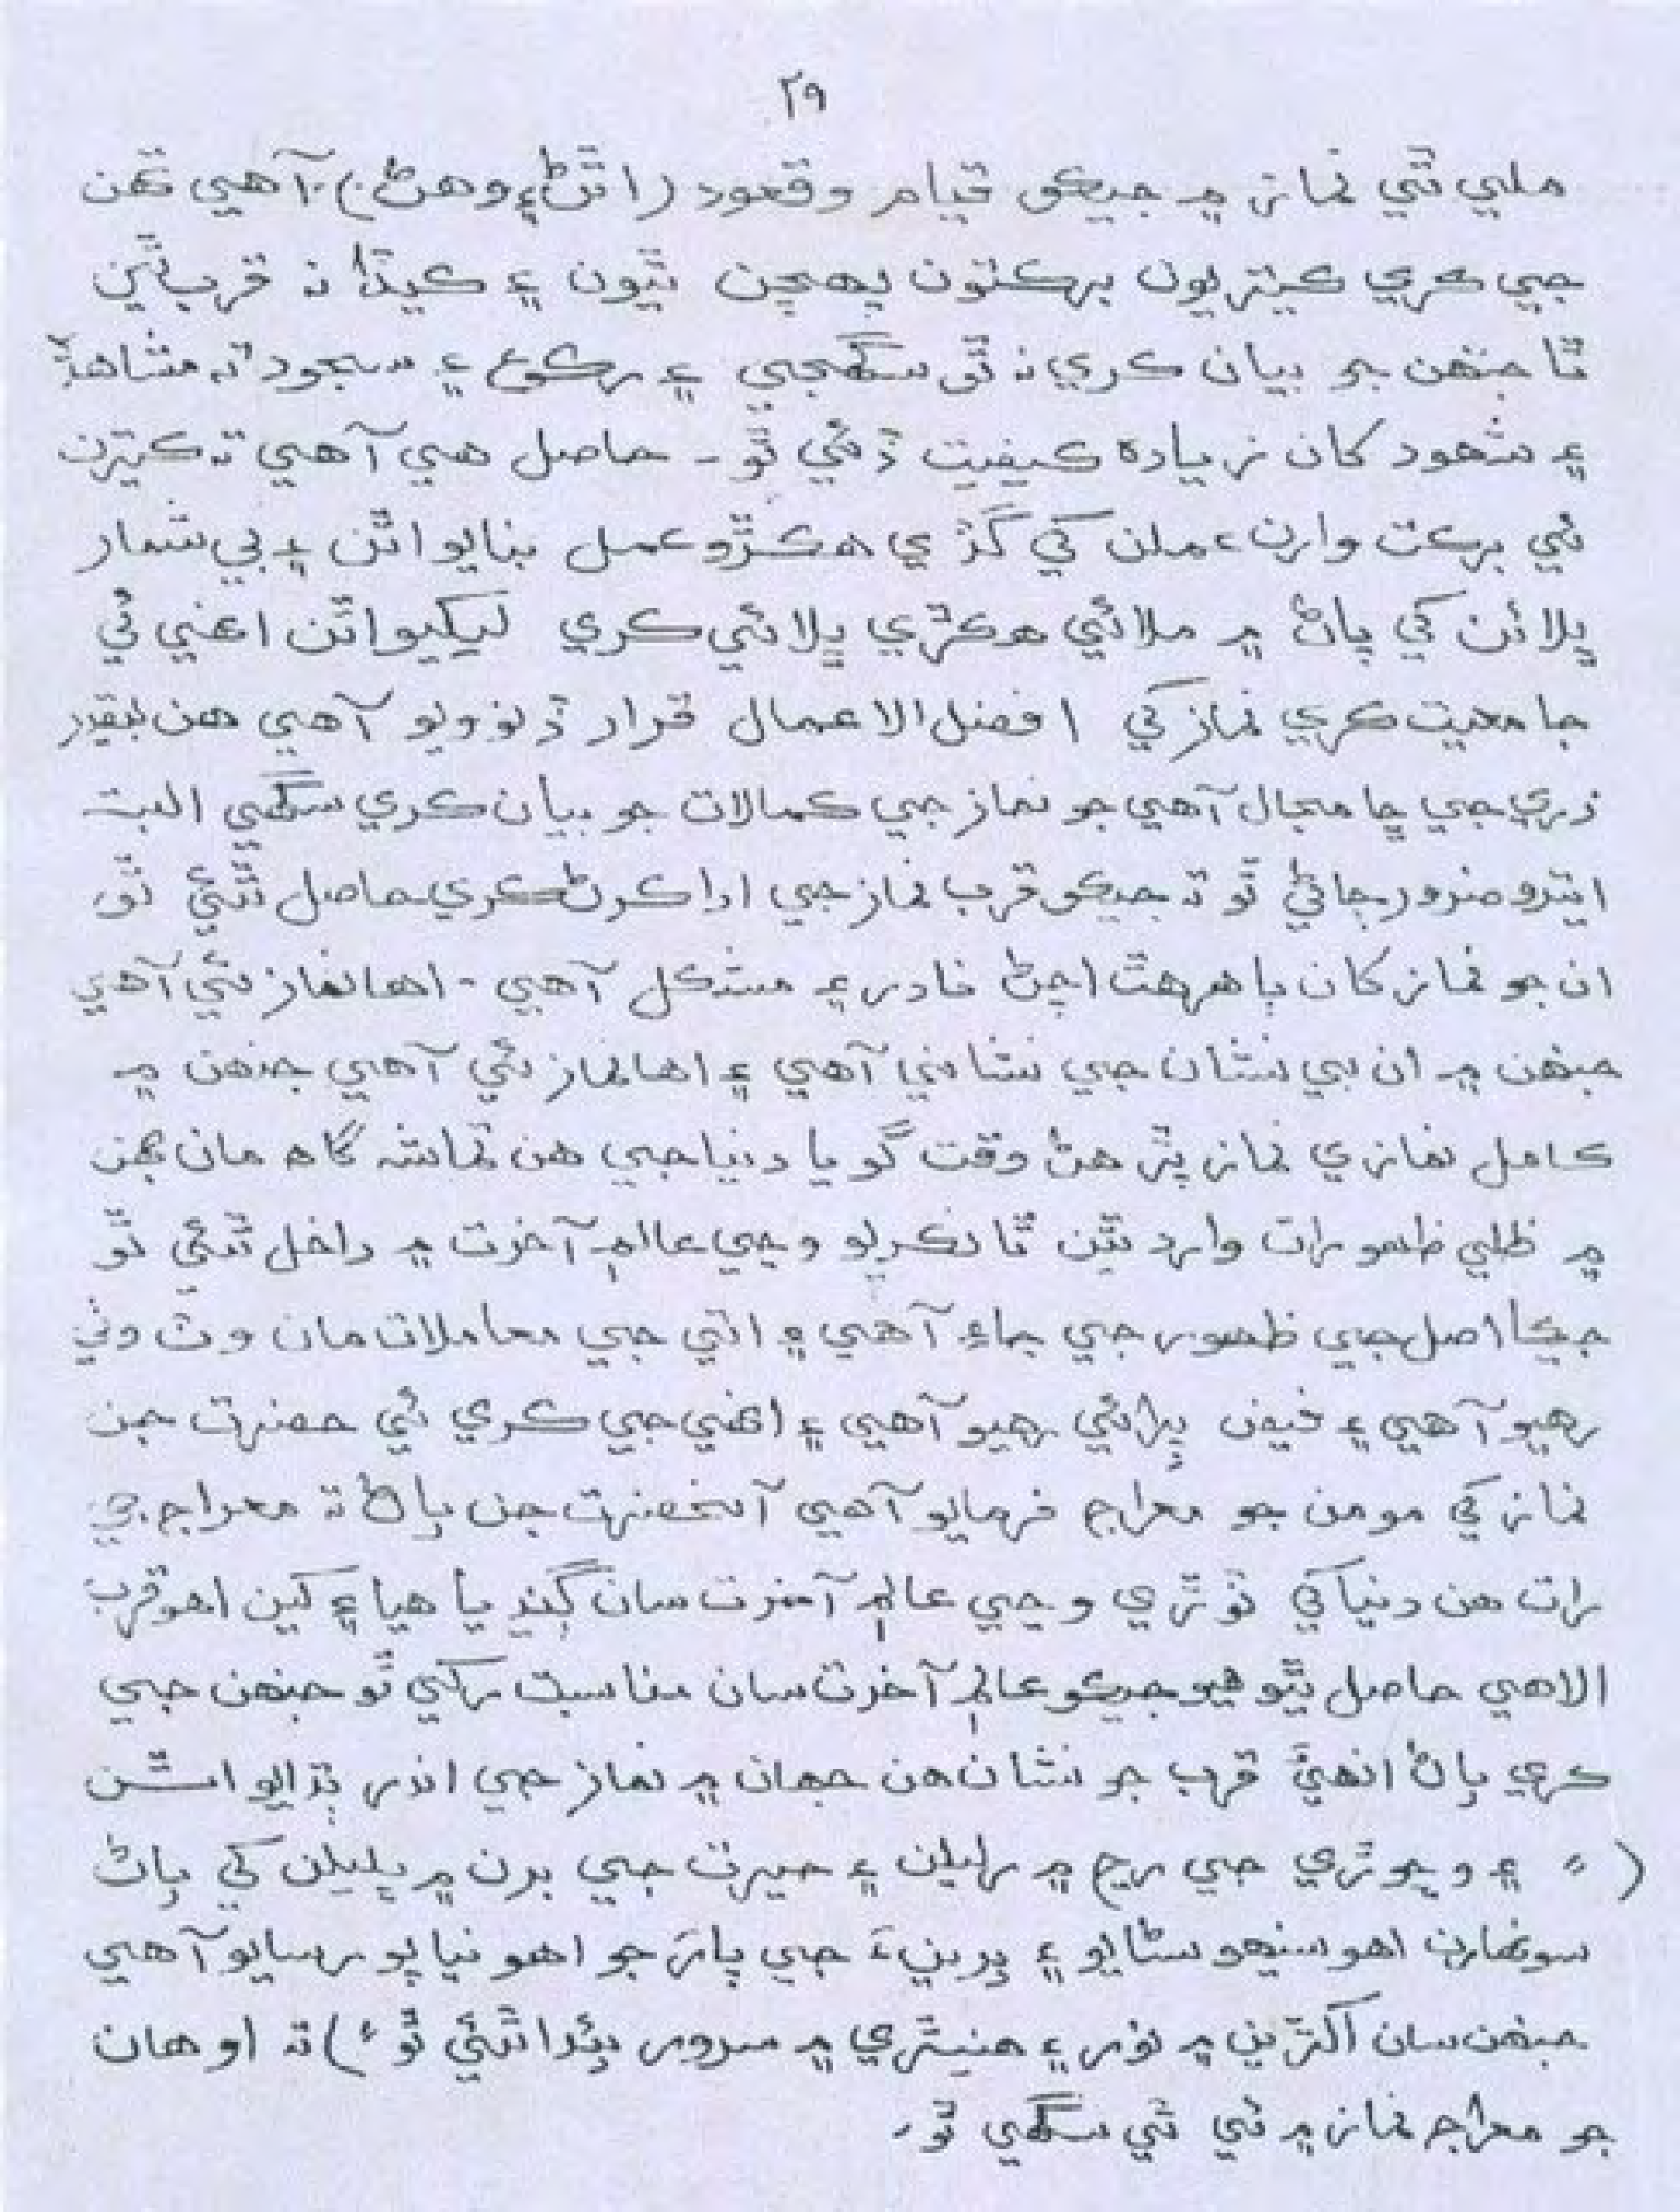 ۲۹
ملي ٿي نماز ۾ جيڪو قيام و قعود (اٿڻ ۽ وهڻ) آهي تنهن
جي ڪري ڪيتريون برڪتون پهچن ٿيون ۽ ڪيڏا نه قرب ٿين
ٿا جنهن جو بيان ڪري نه ٿو سگهجي ۽ رڪوع ۽ سجود ته مشاهدي
۽ شهود کان زياده ڪيفيت ڏئي ٿو۔ حاصل هي آهي ته ڪيترن
ئي برڪت وارن عملن کي گڏي هڪڙو عمل بنايو اٿن ۽ بي شمار
ڀلائن کي پاڻ ۾ ملائي هڪڙي ڀلائي ڪري ليکيو اٿن اهڙي ئي
جامعيت ڪري نماز کي افضل الاعمال قرار ڏنو ويو آهي هن بيقدر
ذري جي ڇا مجال آهي جو نماز جي ڪمالات جو بيان ڪري سگهي البت
ايترو ضرور ڄاڻي ٿو ته جيڪو قرب نماز جي ادا ڪرڻ ڪري حاصل ٿئي ٿو
ان جو نماز کان ٻاهر هٿ اچڻ نادر ۽ مشڪل آهي - اها نماز ئي آهي
جنهن ۾ ان بي نشان جي نشاني آهي ۽ اها نماز ئي آهي جنهن ۾
ڪامل نمازي نماز پڙهڻ وقت گويا دنيا جي هن تماشه گاه مان جنهن
۾ ظلي ظهورات وارد ٿين ٿا نڪري وڃي عالم آخرت ۾ داخل ٿئي ٿو
جيڪا اصل جي ظهور جي جاء آهي ۽ اتي جي معاملات مان وٽ وٺي
رهيو آهي ۽ فيض پرائي رهيو آهي ۽ انهي جي ڪري ئي حضرت جن
نماز کي مومن جو معراج فرمايو آهي آنحضرت جن پاڻ ته معراج جي
رات هن دنيا کي ٽوڙي وڃي عالم آخرت سان ڳنڍيا هيا ۽ کين اهو قرب
الاهي حاصل ٿيو هيو جيڪو عالم آخرت سان مناسبت رکي ٿو جنهن جي
ڪري پاڻ انهيءَ قرب جو نشان هن جهان ۾ نماز جي اندر ٻڌايو اٿن
( " ۽ وڇوڙي جي رڃ ۾ رليلن ۽ حيرت جي برن ۾ ڀليلن کي پاڻ
سونهارن اهو سنيهو سڻايو ۽ پرينءَ جي پارَ جو اهو نياپو رسايو آهي
جنهن سان اکڙين ۾ نور ۽ هنيڙي ۾ سرور پئدا ٿئي ٿو ") ته اوهان
جو معراج نماز ۾ ئي ٿي سگهي ٿو۔